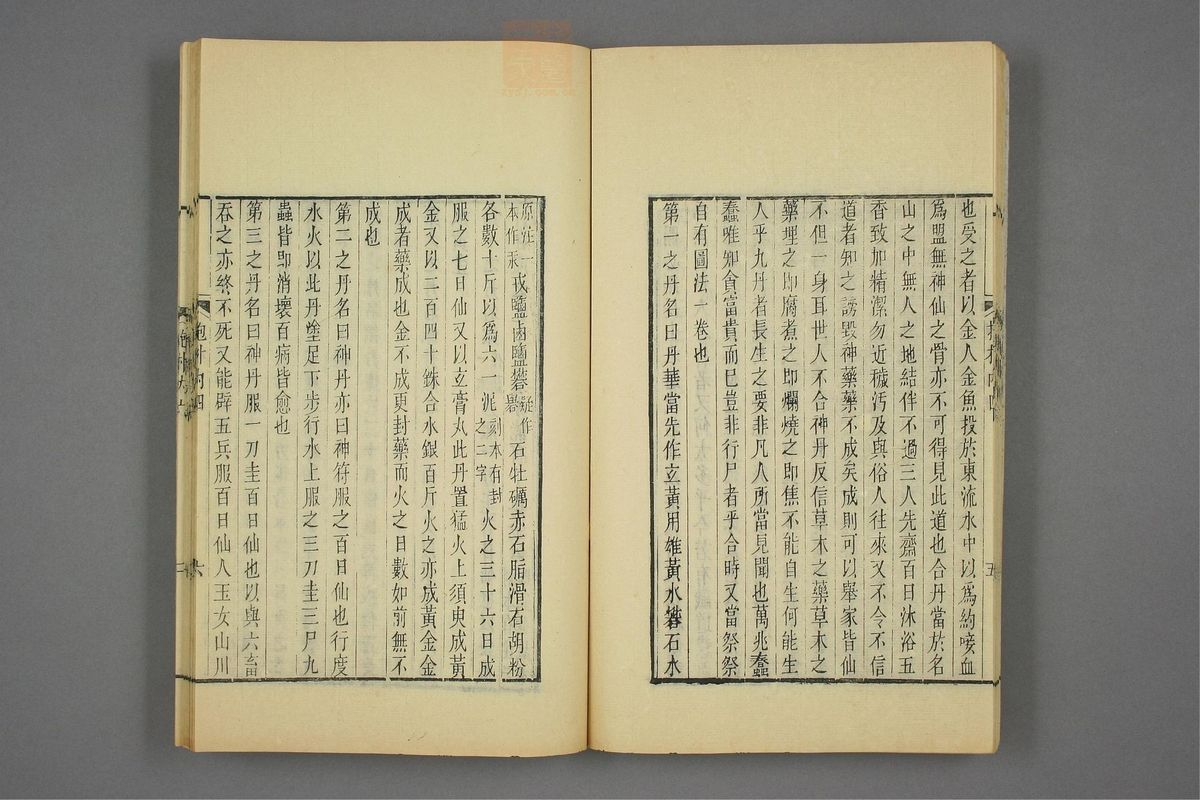 也受之者以金人金魚投於東流水中以爲約唼血
爲盟無神仙之骨亦不可得見此道也合丹當於名
山之中無人之地結伴不過三人先齋百日沐浴五
香致加精潔勿近穢汚及與俗人往來又不令不信
道者知之謗毀神藥藥不成矣成則可以舉家皆仙
不但一身耳世人不合神丹反信草木之藥草木之
藥埋之即腐煮之即爛燒之即焦不能自生何能生
人乎九丹者長生之要非凡人所當見聞也萬兆蠢
蠢唯知貪富貴而已豈非行尸者乎合時又當祭祭
自有圖法一卷也
第一之丹名曰丹華當先作玄黃用雄黃水礬石水
原注一本作汞戎鹽鹵鹽礬疑作礜石牡礪赤石脂滑石胡粉
各數十斤以爲六一泥刻本有封之二字火之三十六日成
服之七日仙又以玄膏丸此丹置猛火上須臾成黃
金又以二百四十銖合水銀百斤火之亦成黃金金
成者藥成也金不成更封藥而火之日數如前無不
成也
第二之丹名曰神丹亦曰神符服之百日仙也行度
水火以此丹塗足下步行水上服之三刀圭三尸九
蟲皆即消壞百病皆愈也
第三之丹名曰神丹服一刀圭百日仙也以與六畜
吞之亦終不死又能辟五兵服百日仙人玉女山川
抱朴內四
六